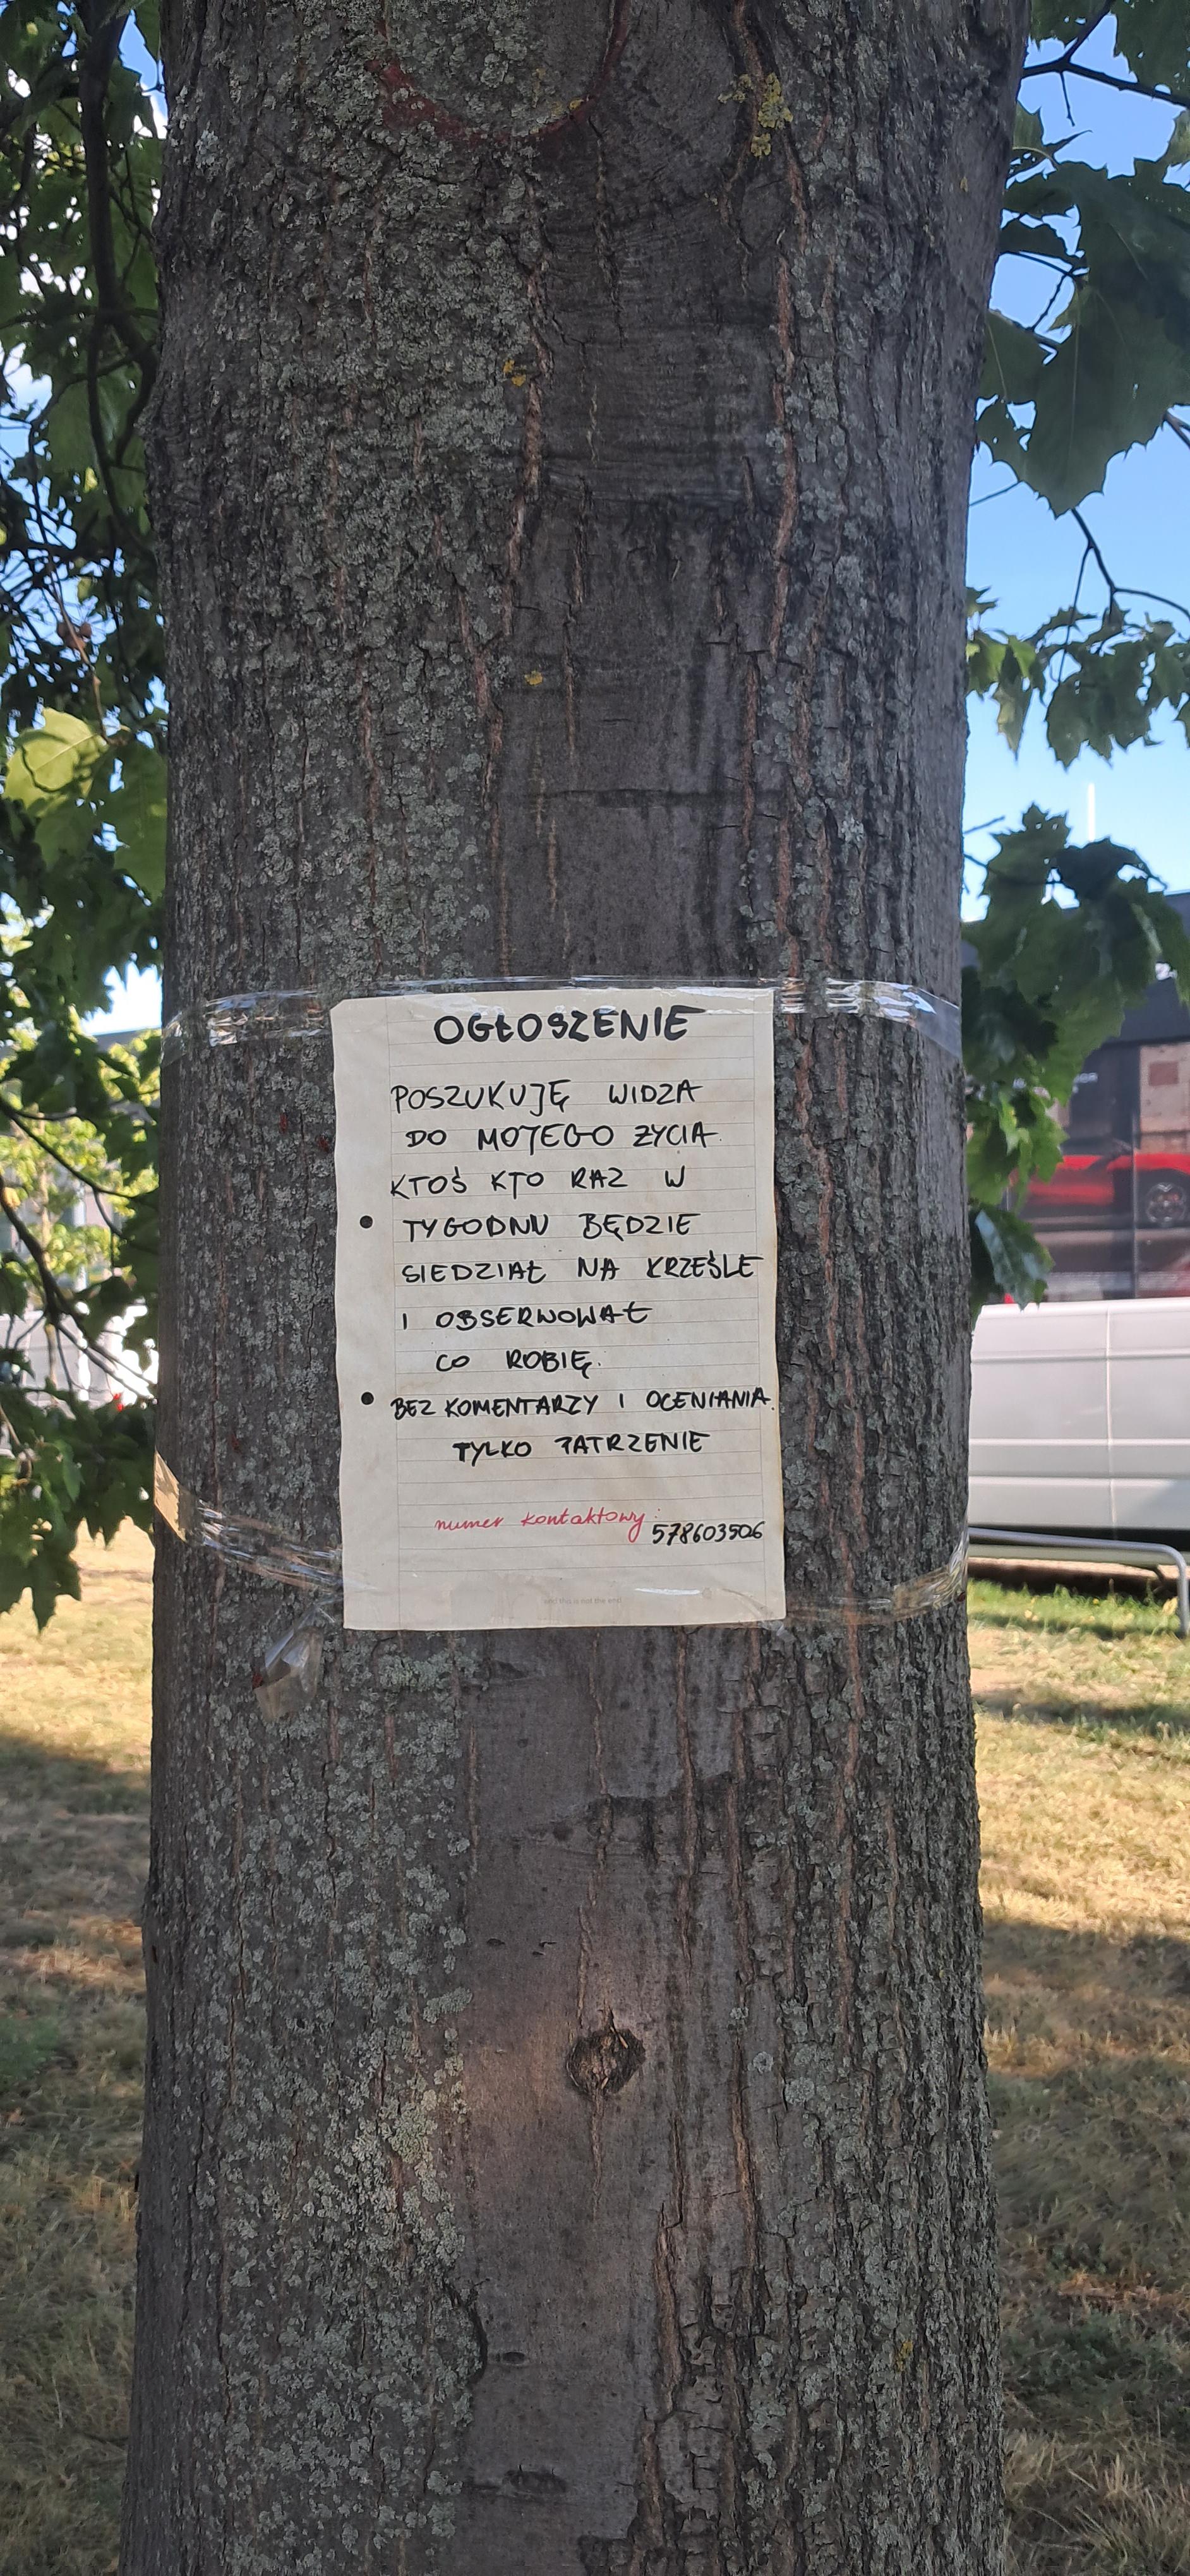 OGŁOSZENIE
POSZUKUJĘ WIDZA
DO MOJEGO ŻYCIA.
KTOŚ KTO RAZ W
TYGODNIU BĘDZIE
SIEDZIAŁ NA KRZEŚLE
I OBSERWOWAŁ
CO ROBIĘ.
BEZ KOMENTARZY I OCENIANIA.
TYLKO PATRZENIE
numer kontaktowy:
578603506
and this is not the end